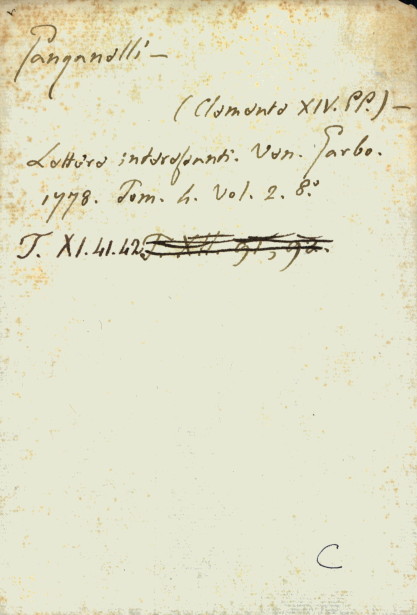 Ganganelli —
(Clemente XIV. PP.) —
Lettere interessanti. Ven. Garbo.
1778. Tom. 4. Vol. 2. 8.°
T. XI.41.42. T. XII. 91, 92.
C